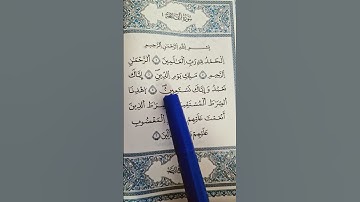 سُورَةُ الْفَاتِحَةِ
بِسْمِ اللَّهِ الرَّحْمَٰنِ الرَّحِيمِ
الْحَمْدُ لِلَّهِ رَبِّ الْعَالَمِينَ الرَّحْمَٰنِ
الرَّحِيمِ مَٰلِكِ يَوْمِ الدِّينِ إِيَّاكَ
نَعْبُدُ وَإِيَّاكَ نَسْتَعِينُ اهْدِنَا
الصِّرَٰطَ الْمُسْتَقِيمَ صِرَٰطَ الَّذِينَ
أَنْعَمْتَ عَلَيْهِمْ الْمَغْضُوبِ
عَلَيْهِمْ